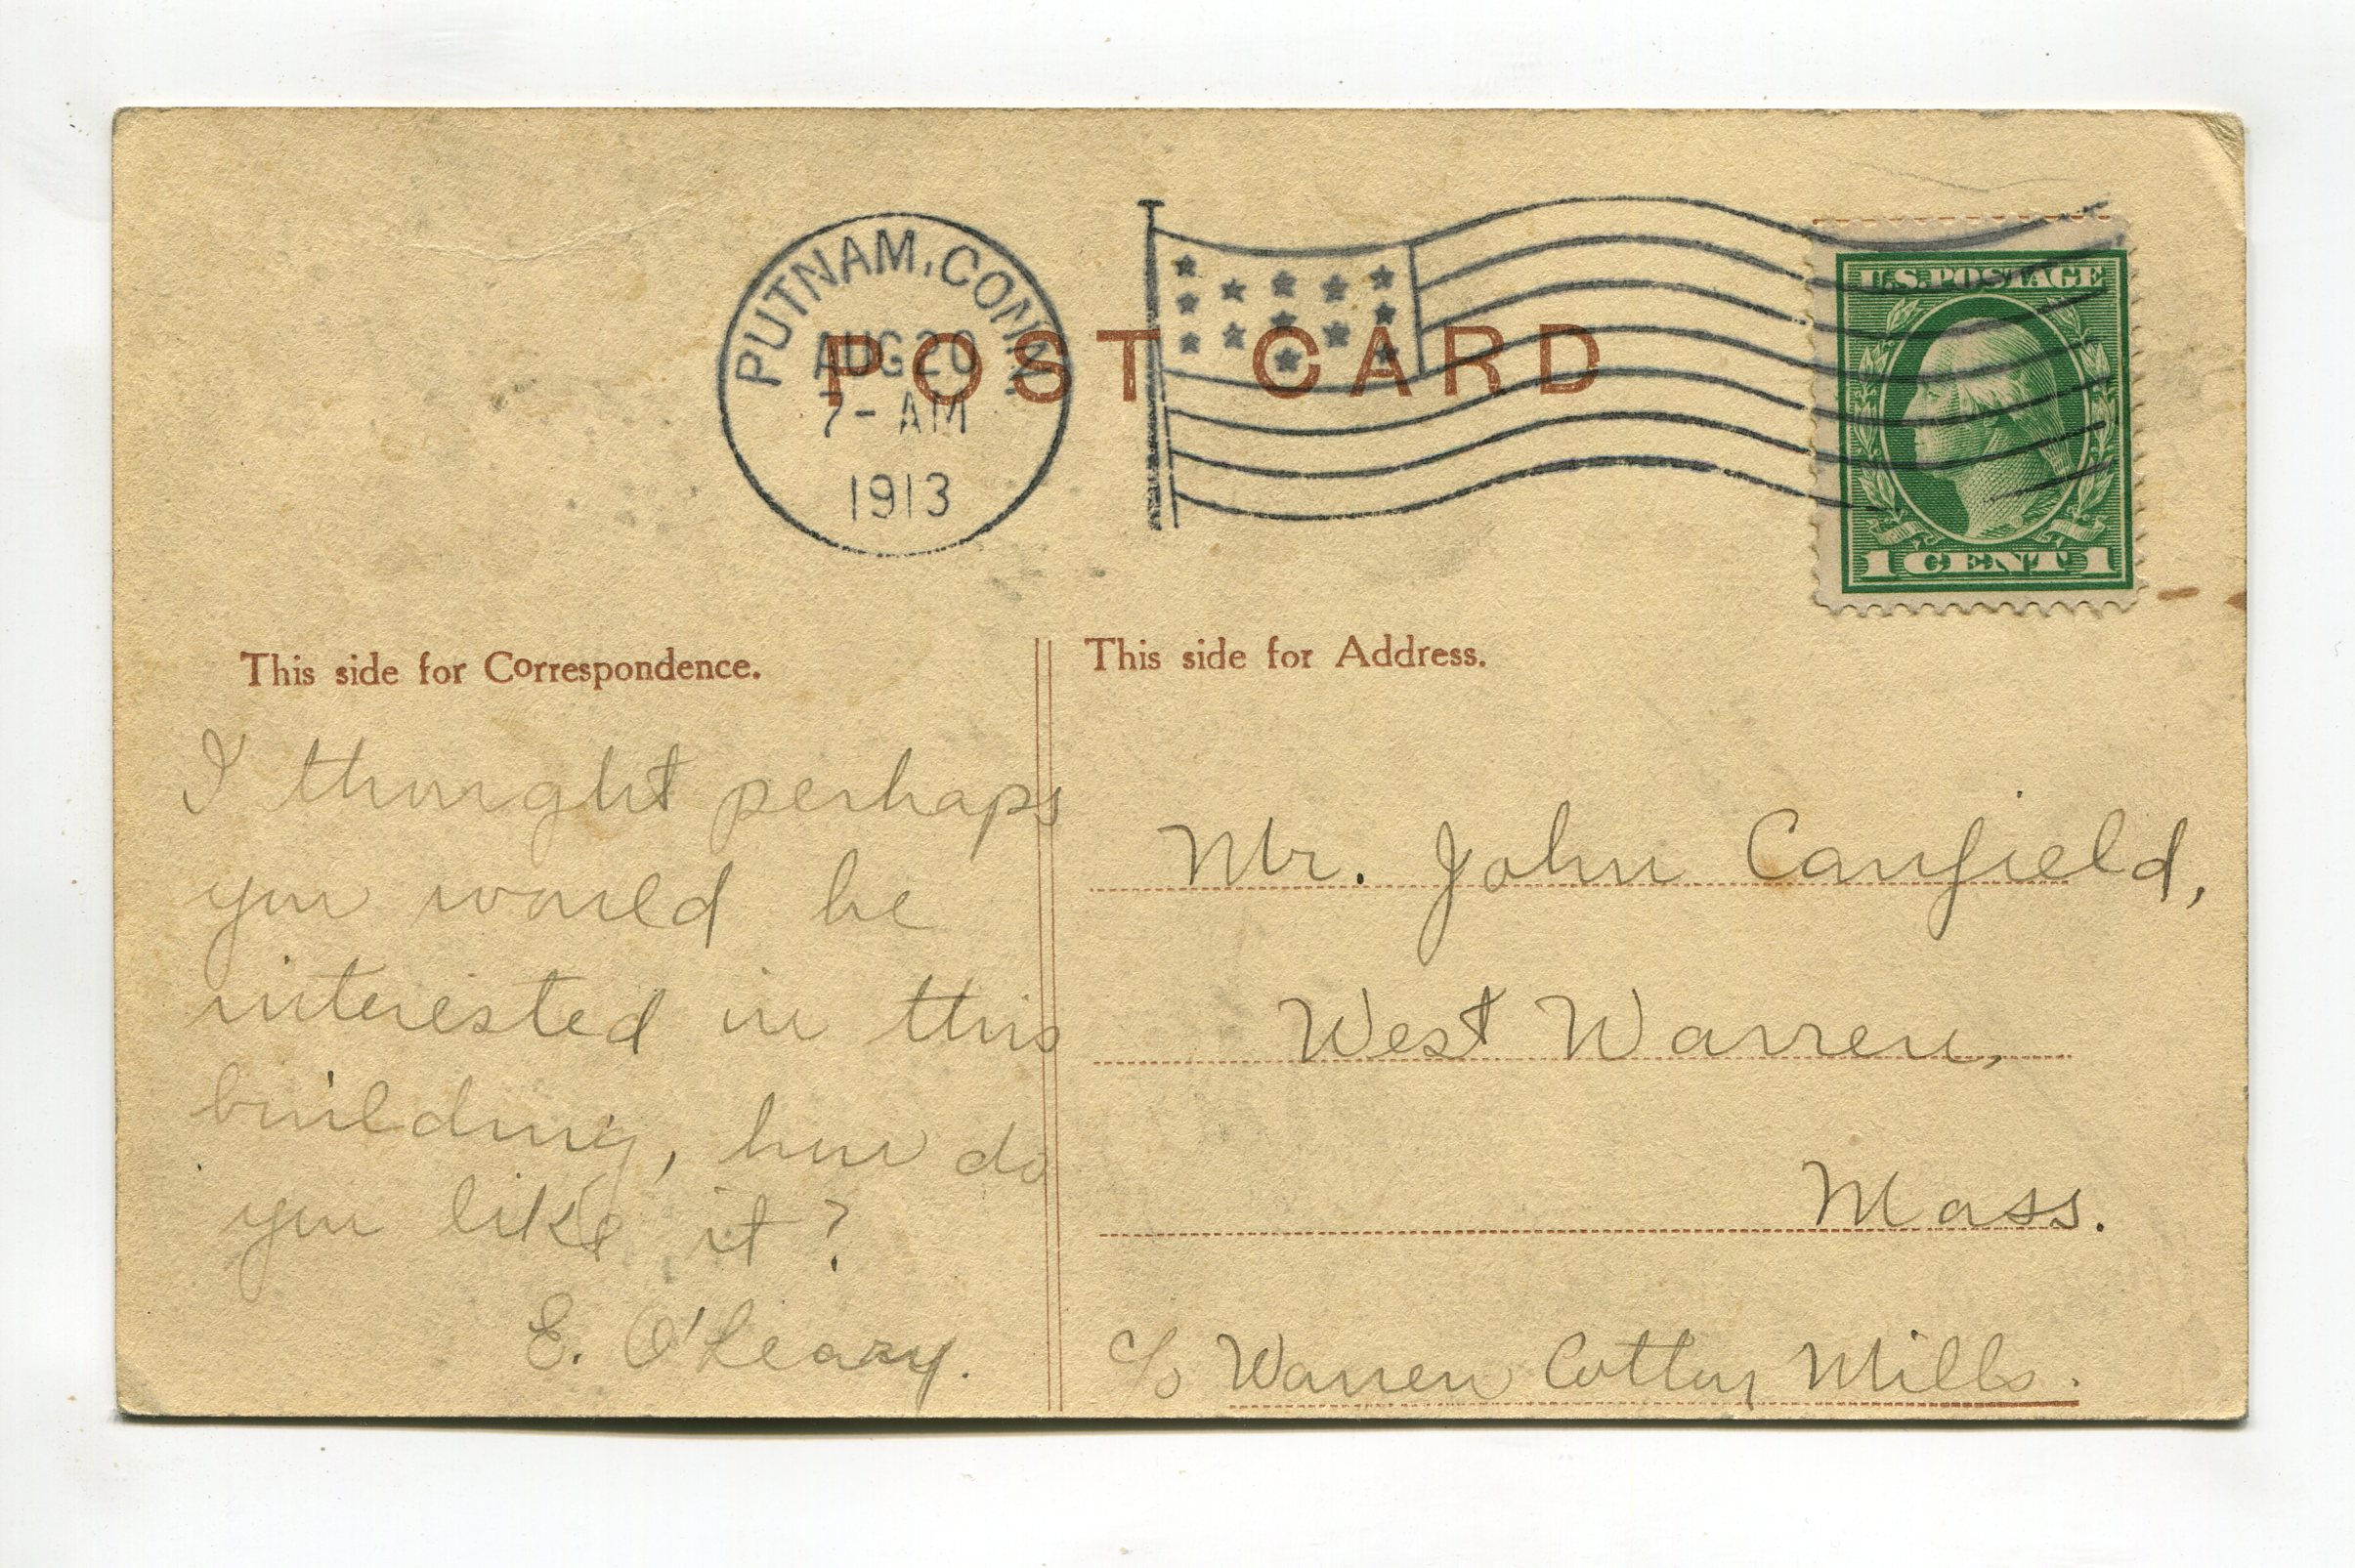 PUTNAM, CONN.
AUG 20
7- AM
1913
POST CARD
U.S. POSTAGE
1 CENT 1
This side for Correspondence.
I thought perhaps
you would be
interested in this
building, how do
you like it?
E. O'Leary.
This side for Address.
Mr. John Canfield,
West Warren,
Mass.
c/o Warren Cotton Mills.